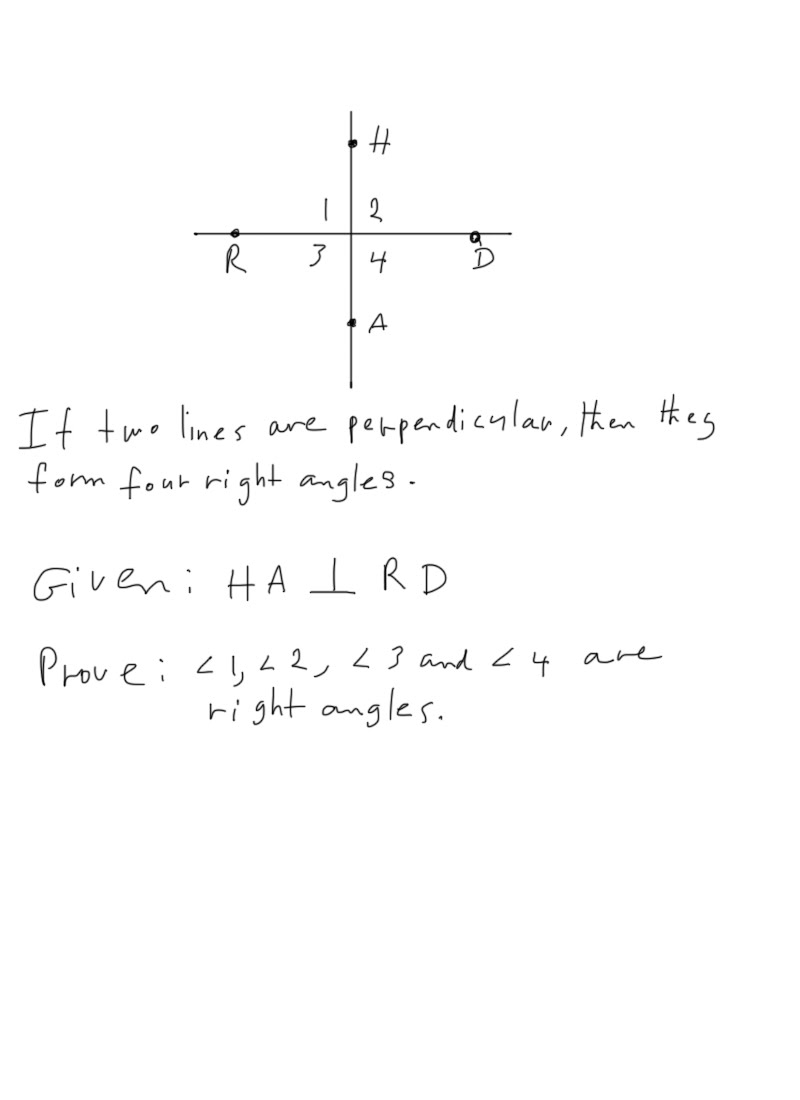 H
1 2
R 3 4 D
A
If two lines are perpendicular, then they
form four right angles.
Given: HA ⊥ RD
Prove: ∠1, ∠2, ∠3 and ∠4 are
right angles.